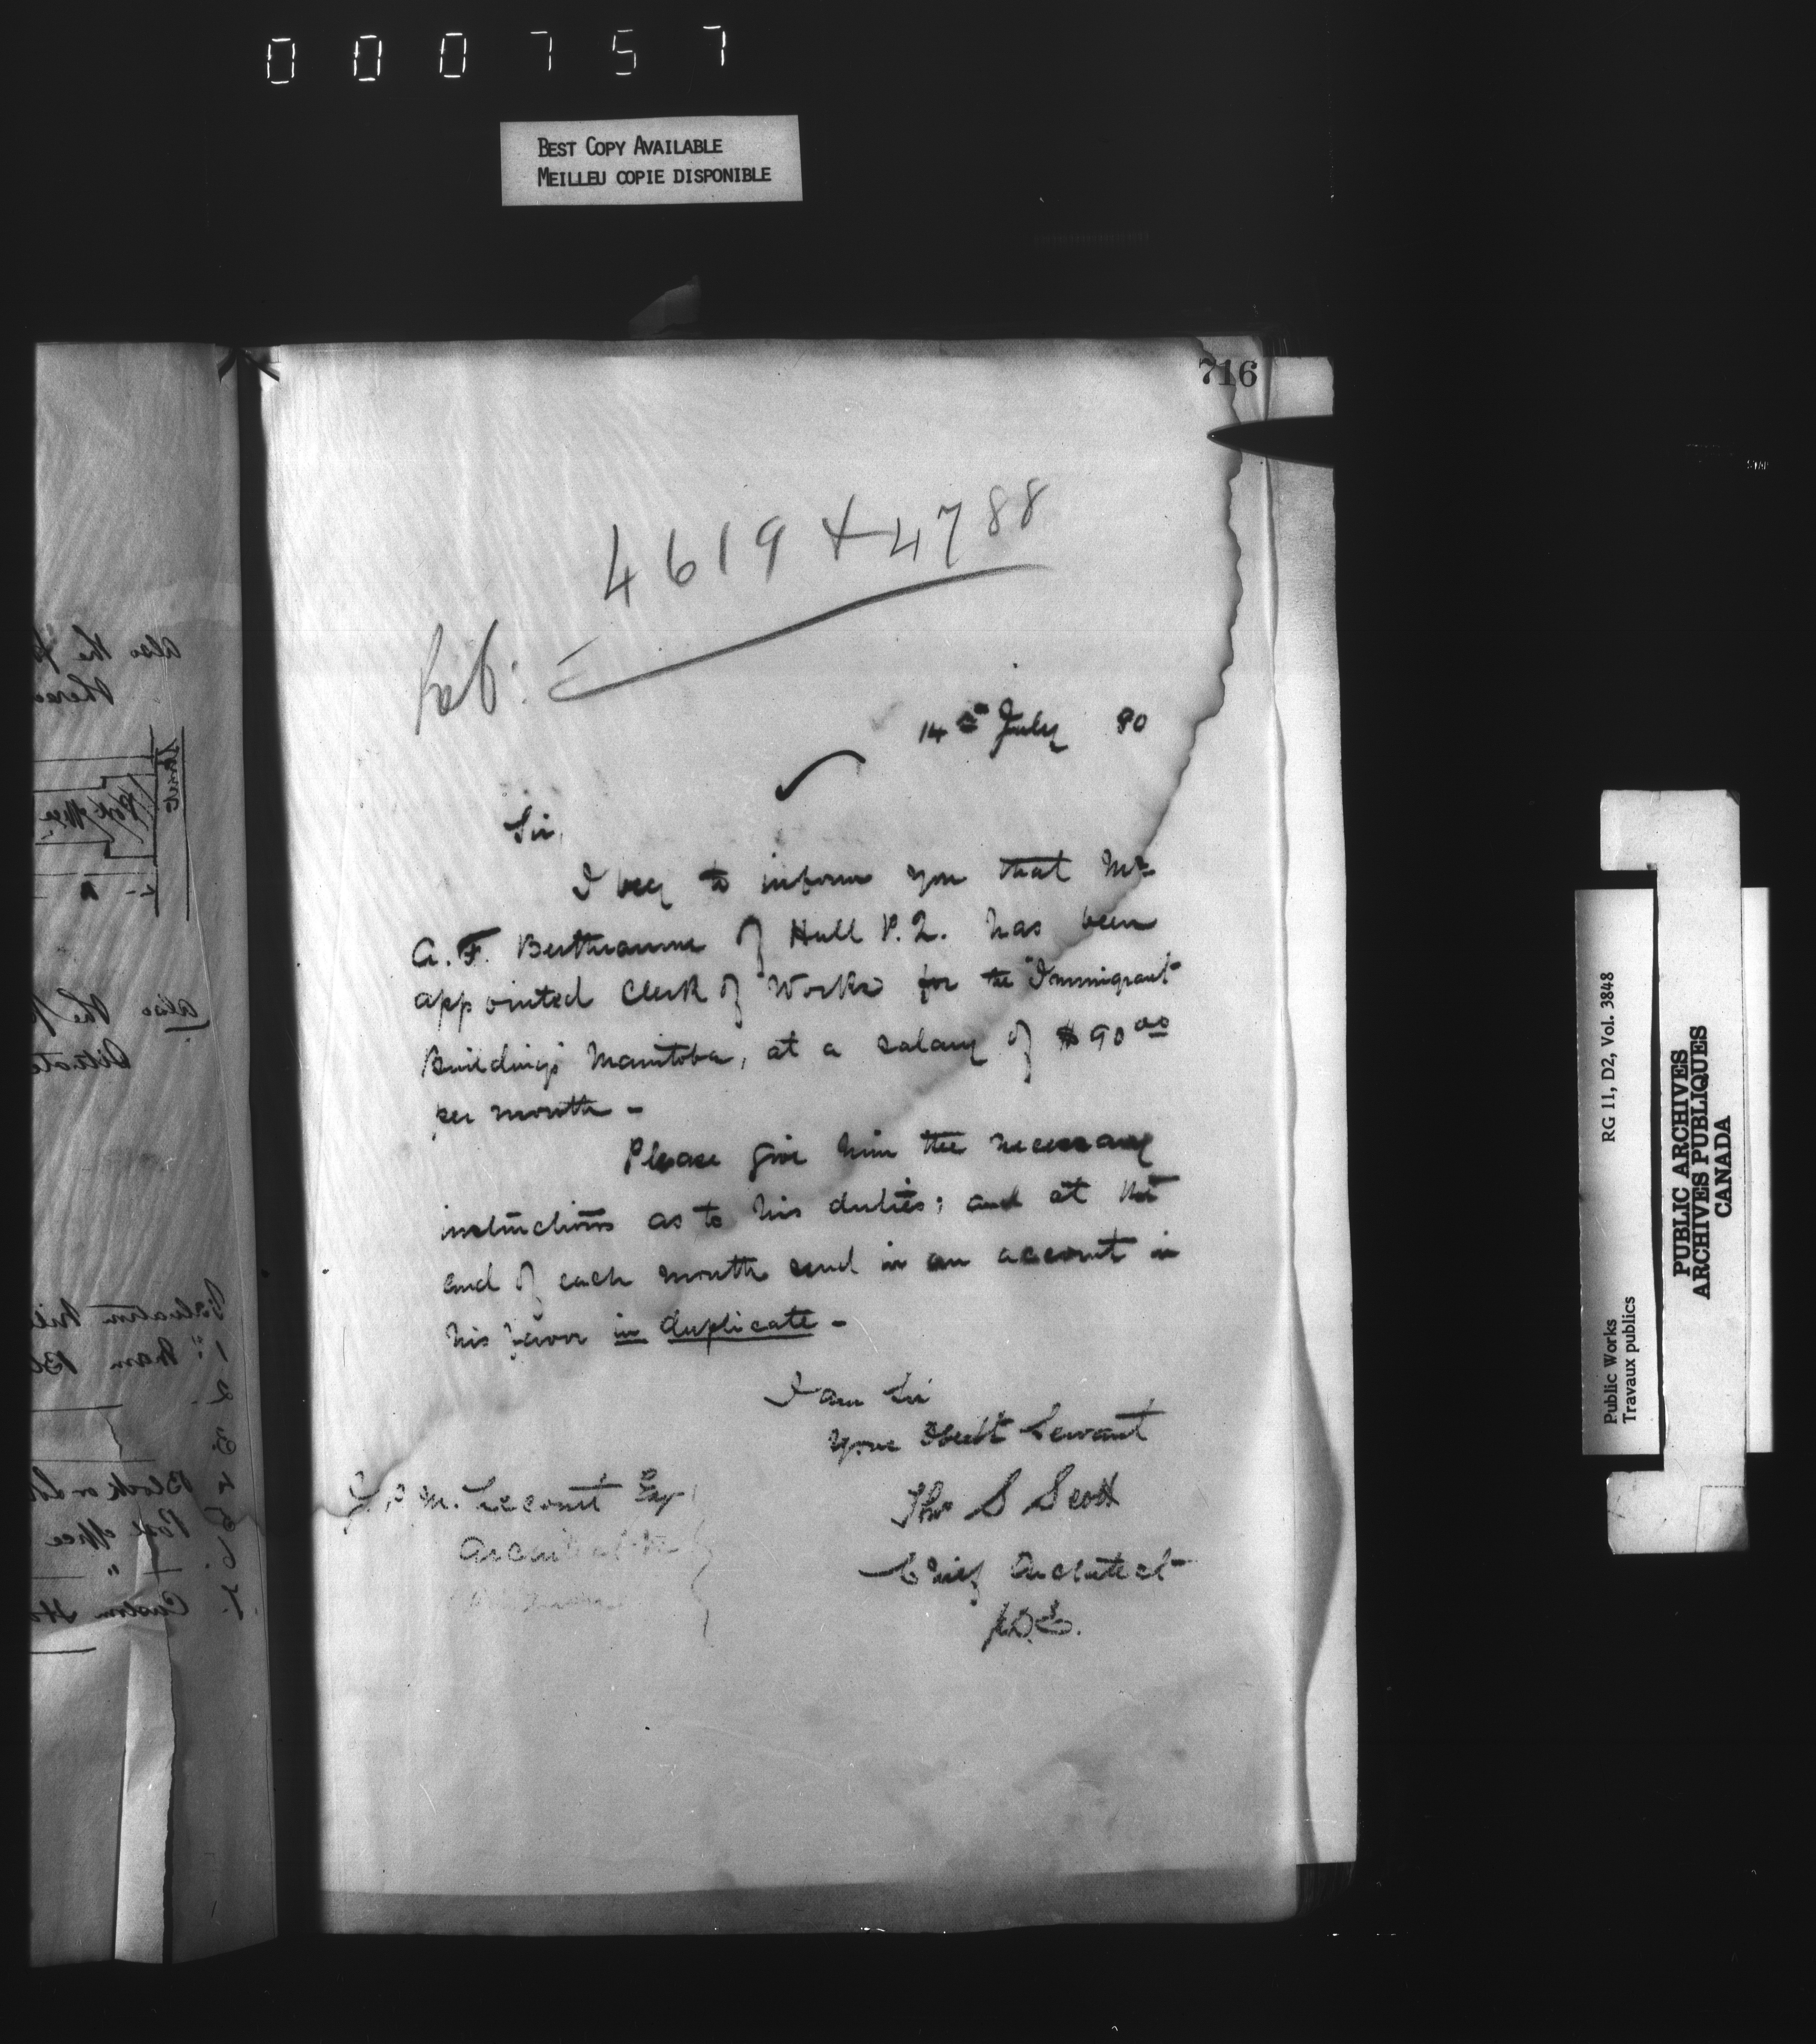 000757
BEST COPY AVAILABLE
MEILLEU COPIE DISPONIBLE
716
4619 + 4788
14th July 80
Sir,
I beg to inform you that Mr
A. F. Berthiaume of Hull P.Q. has been
appointed Clerk of Works for the Immigrant
Buildings Manitoba, at a salary of $90 00
per month -
Please give him the necessary
instructions as to his duties; and at the
end of each month send in an account in
his favor in duplicate -
I am Sir
Your Obedt Servant
Thos S Scott
Chief Architect
J. P. M. Lecourt Esq.
Architect
also the
Street
Post office
also the
Situate
Valuation
1
2
3
4 Block
5 Post office
6 "
7 Custom
RG 11, D2, Vol. 3848
Public Works
Travaux publics
PUBLIC ARCHIVES
ARCHIVES PUBLIQUES
CANADA